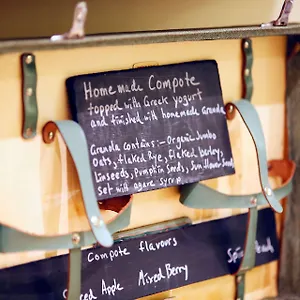 Home made Compote
topped with Greek yogurt
and finished with homemade Granola
Granola Contains:- Organic Jumbo
Oats, flaked Rye, flaked barley,
Linseeds, Pumpkin Seeds, Sunflower Seeds
set with agave syrup.
Compote flavors
Apple Mixed Berry